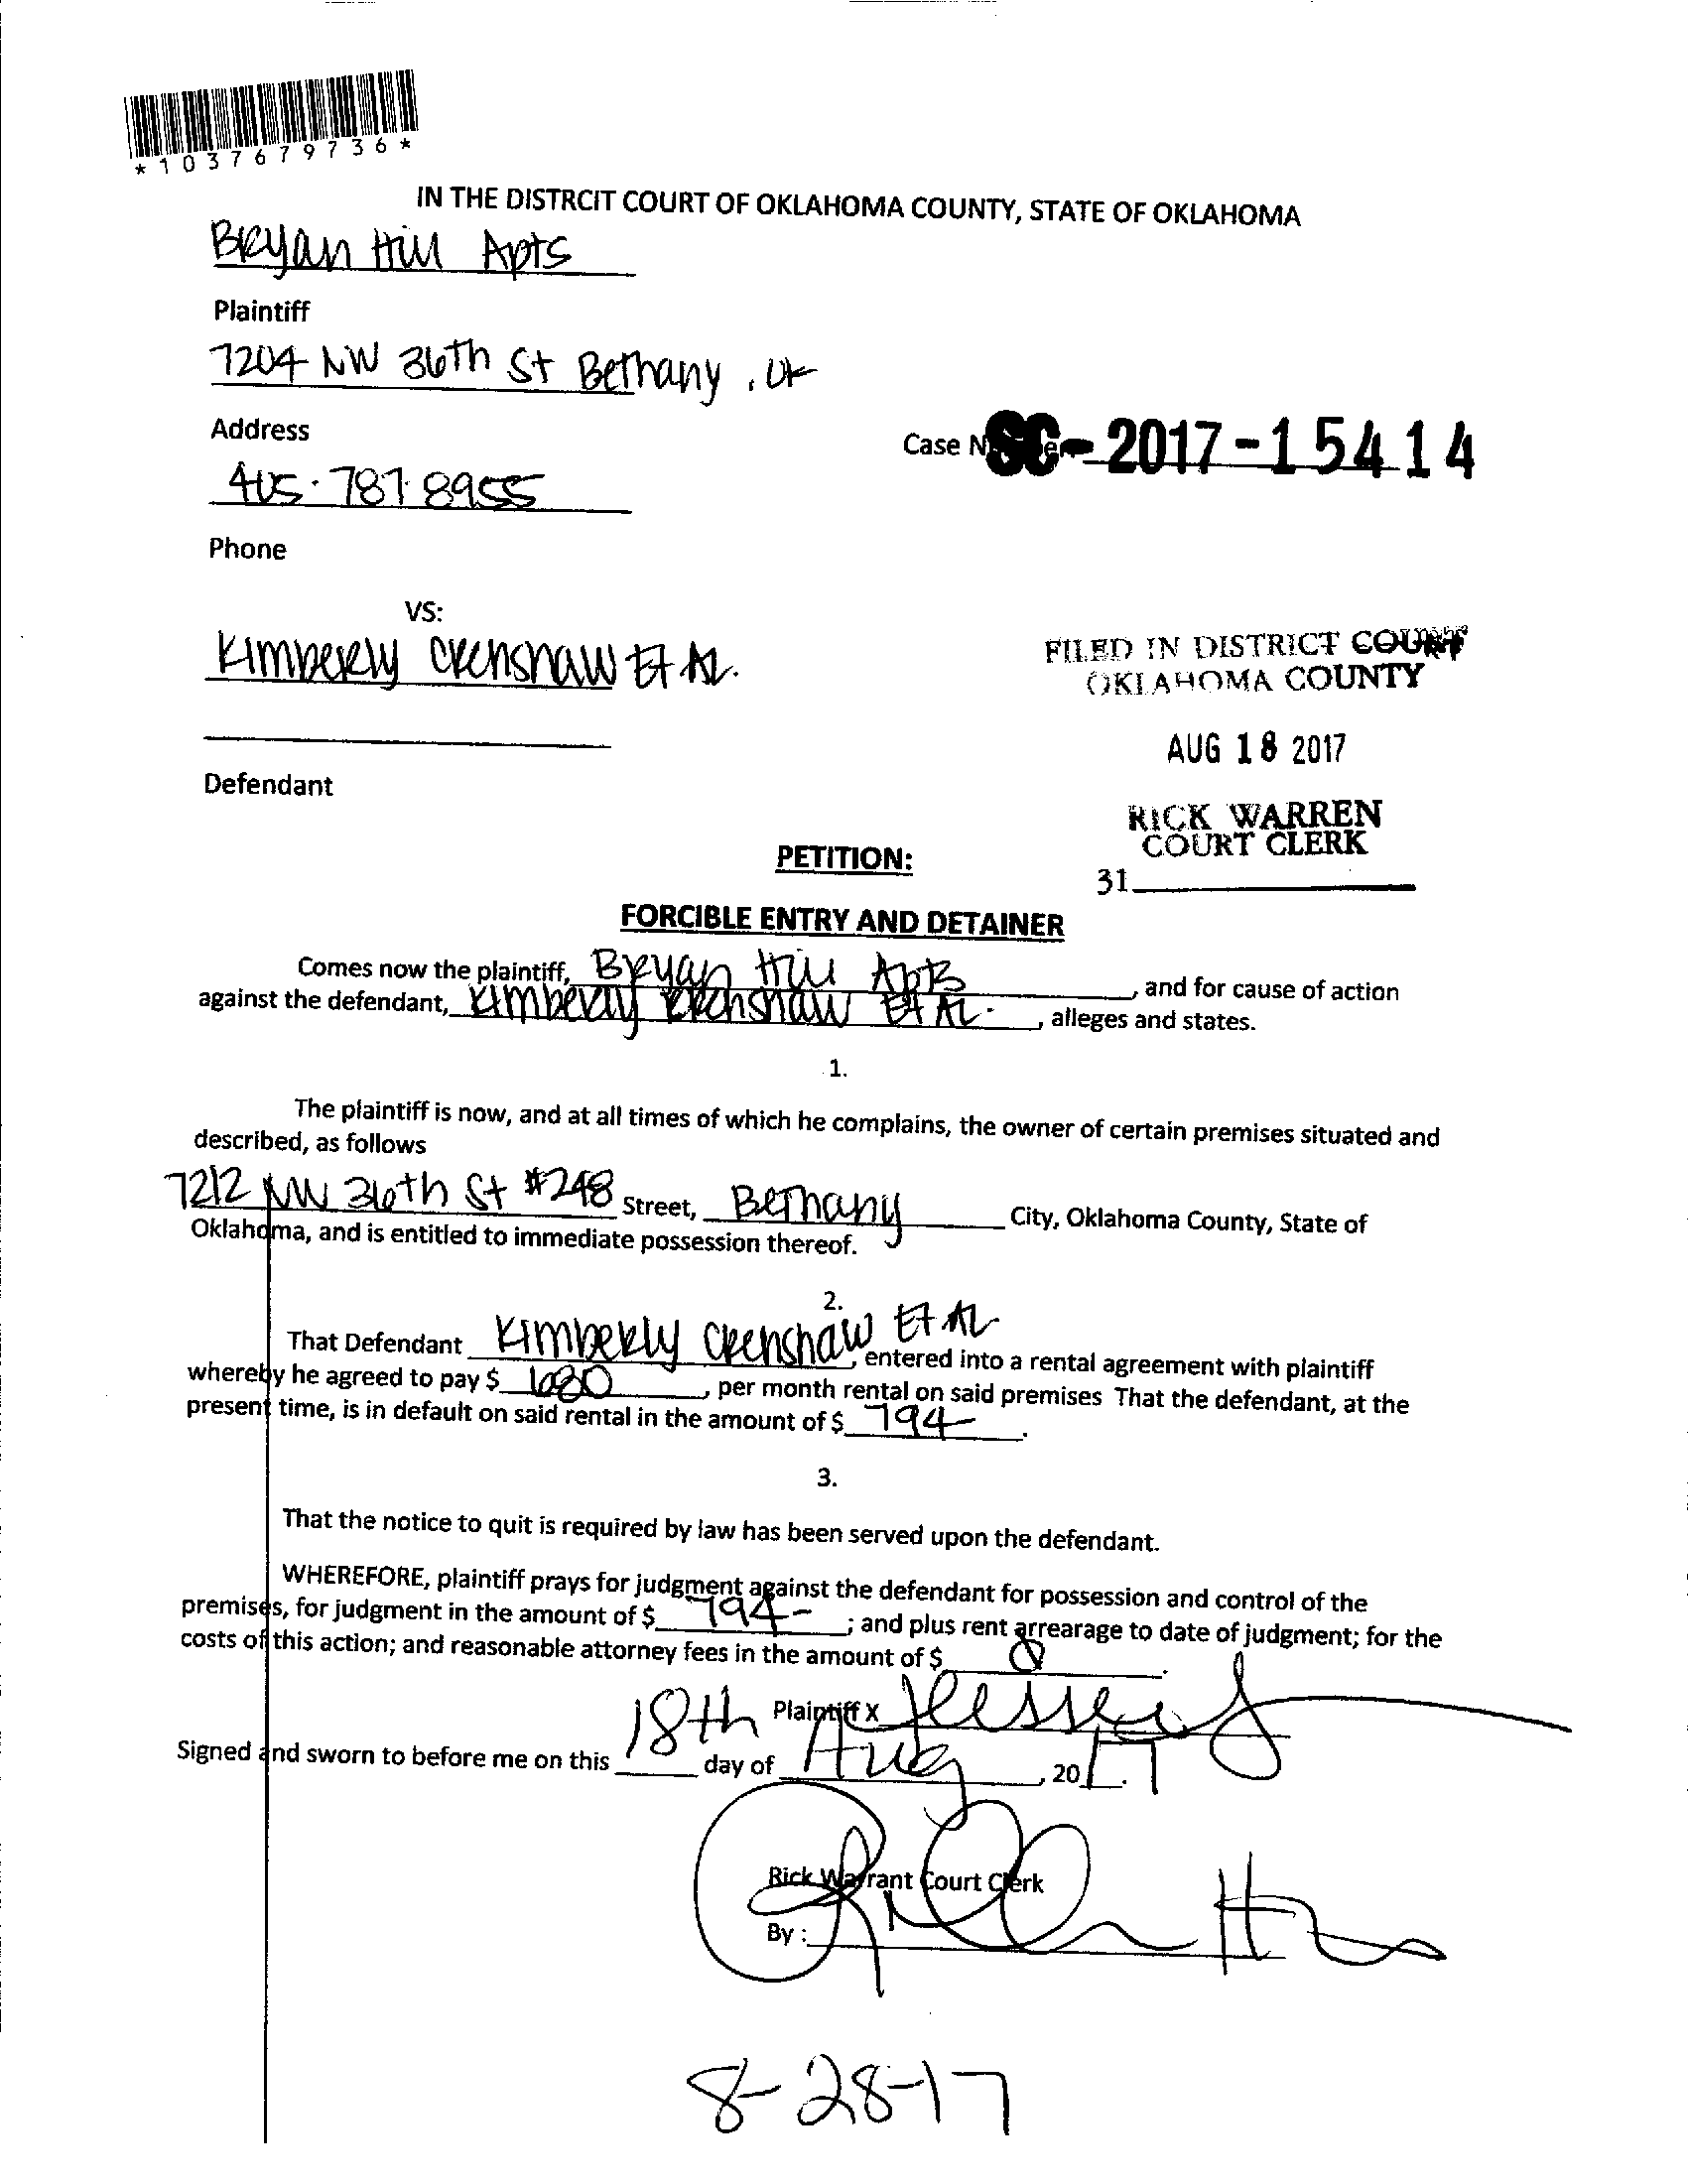 *1037679736*
IN THE DISTRCIT COURT OF OKLAHOMA COUNTY, STATE OF OKLAHOMA
Bryan Hill Apts
Plaintiff
7204 NW 36th St Bethany, OK
Address
Case N SC-2017-15414
405.787.8955
Phone
VS:
Kimberly Crenshaw Et AL.
FILED IN DISTRICT COURT
OKLAHOMA COUNTY
AUG 18 2017
Defendant
RICK WARREN
COURT CLERK
PETITION:
31
FORCIBLE ENTRY AND DETAINER
Comes now the plaintiff, Bryan Hill Apts, and for cause of action
against the defendant, Kimberly Crenshaw Et AL., alleges and states.
1.
The plaintiff is now, and at all times of which he complains, the owner of certain premises situated and
described, as follows
7212 NW 36th St #248 Street, Bethany City, Oklahoma County, State of
Oklahoma, and is entitled to immediate possession thereof.
2.
That Defendant Kimberly Crenshaw Et AL, entered into a rental agreement with plaintiff
whereby he agreed to pay $ 680, per month rental on said premises That the defendant, at the
present time, is in default on said rental in the amount of $ 794.
3.
That the notice to quit is required by law has been served upon the defendant.
WHEREFORE, plaintiff prays for judgment against the defendant for possession and control of the
premises, for judgment in the amount of $ 794-; and plus rent arrearage to date of judgment; for the
costs of this action; and reasonable attorney fees in the amount of $ 0.
Plaintiff X
Signed and sworn to before me on this 18th day of Aug, 2017
Rick Warrant Court Clerk
By :
8-28-17